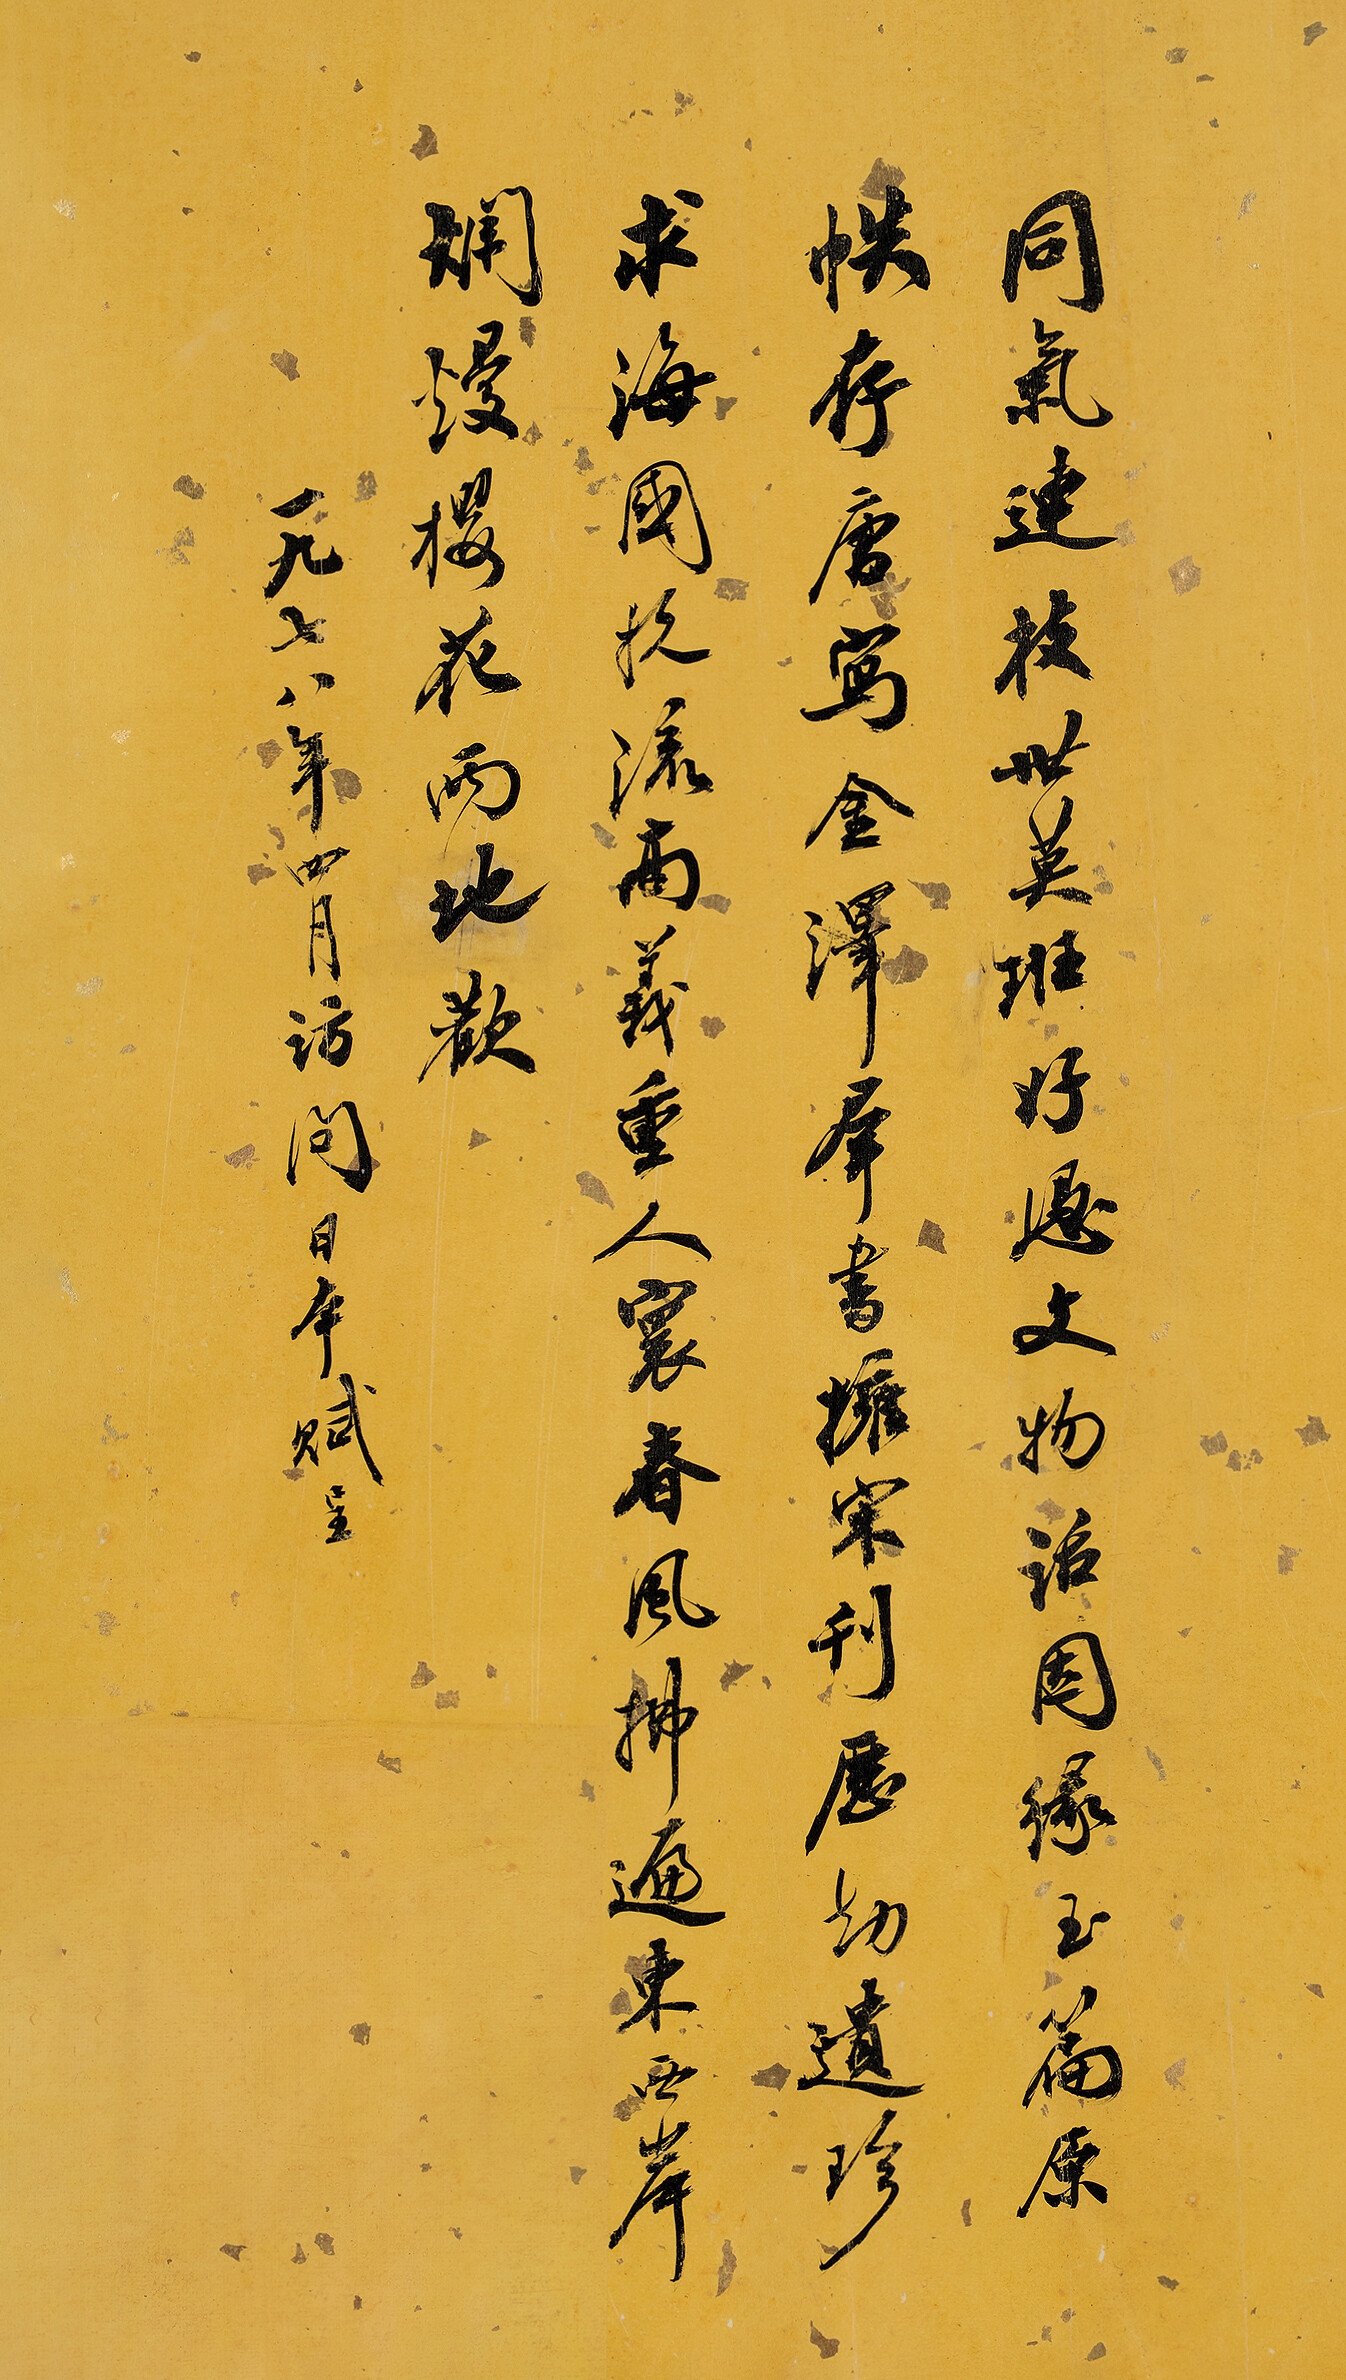 同氣連枝世莫班好憑文物話因緣玉篇原
帙存唐寫金澤群書擁宋刊歷劫遺珍
求海國抗流高義重人寰春風拂遍東西岸
爛熳櫻花兩地歡
一九七八年四月訪問日本賦呈